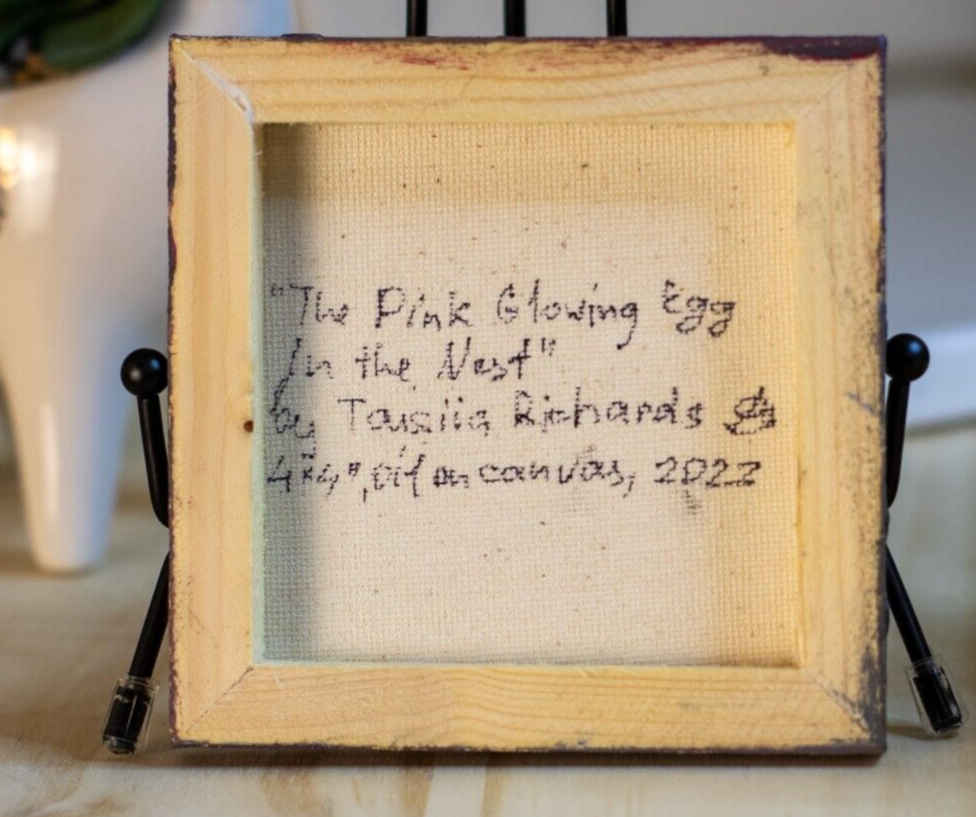 "The Pink Glowing Egg
in the Nest"
by Taysiia Richards
4"x4", oil on canvas, 2022